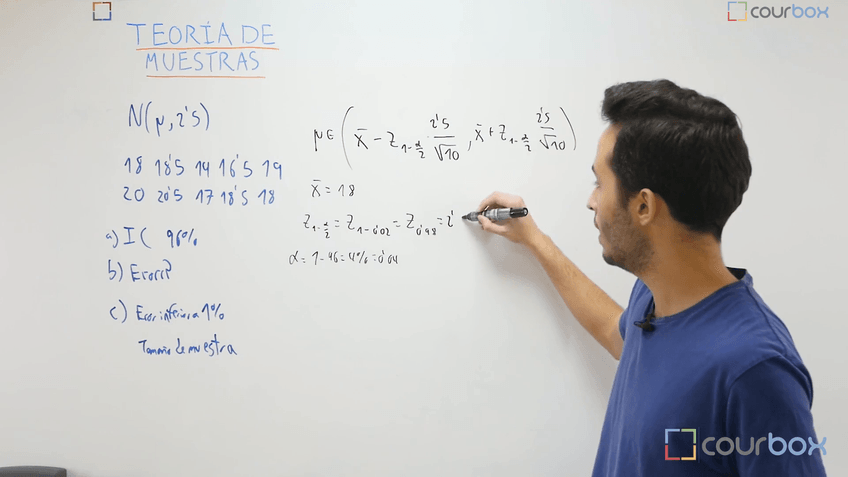 courbox
TEORÍA DE
MUESTRAS
N(μ, 2'5)
18 18'5 14 16'5 19
20 20'5 17 18'5 18
a) IC 96%
b) Error?
c) Error inferior a 1%
Tamaño de muestra
μ ∈ ( x̄ − Z₁₋α/₂ · 2'5/√10 , x̄ + Z₁₋α/₂ 2'5/√10 )
x̄ = 18
Z₁₋α/₂ = Z₁₋₀'₀₂ = Z₀'₉₈ = 2'
α = 1 − 96 = 4% = 0'04
courbox